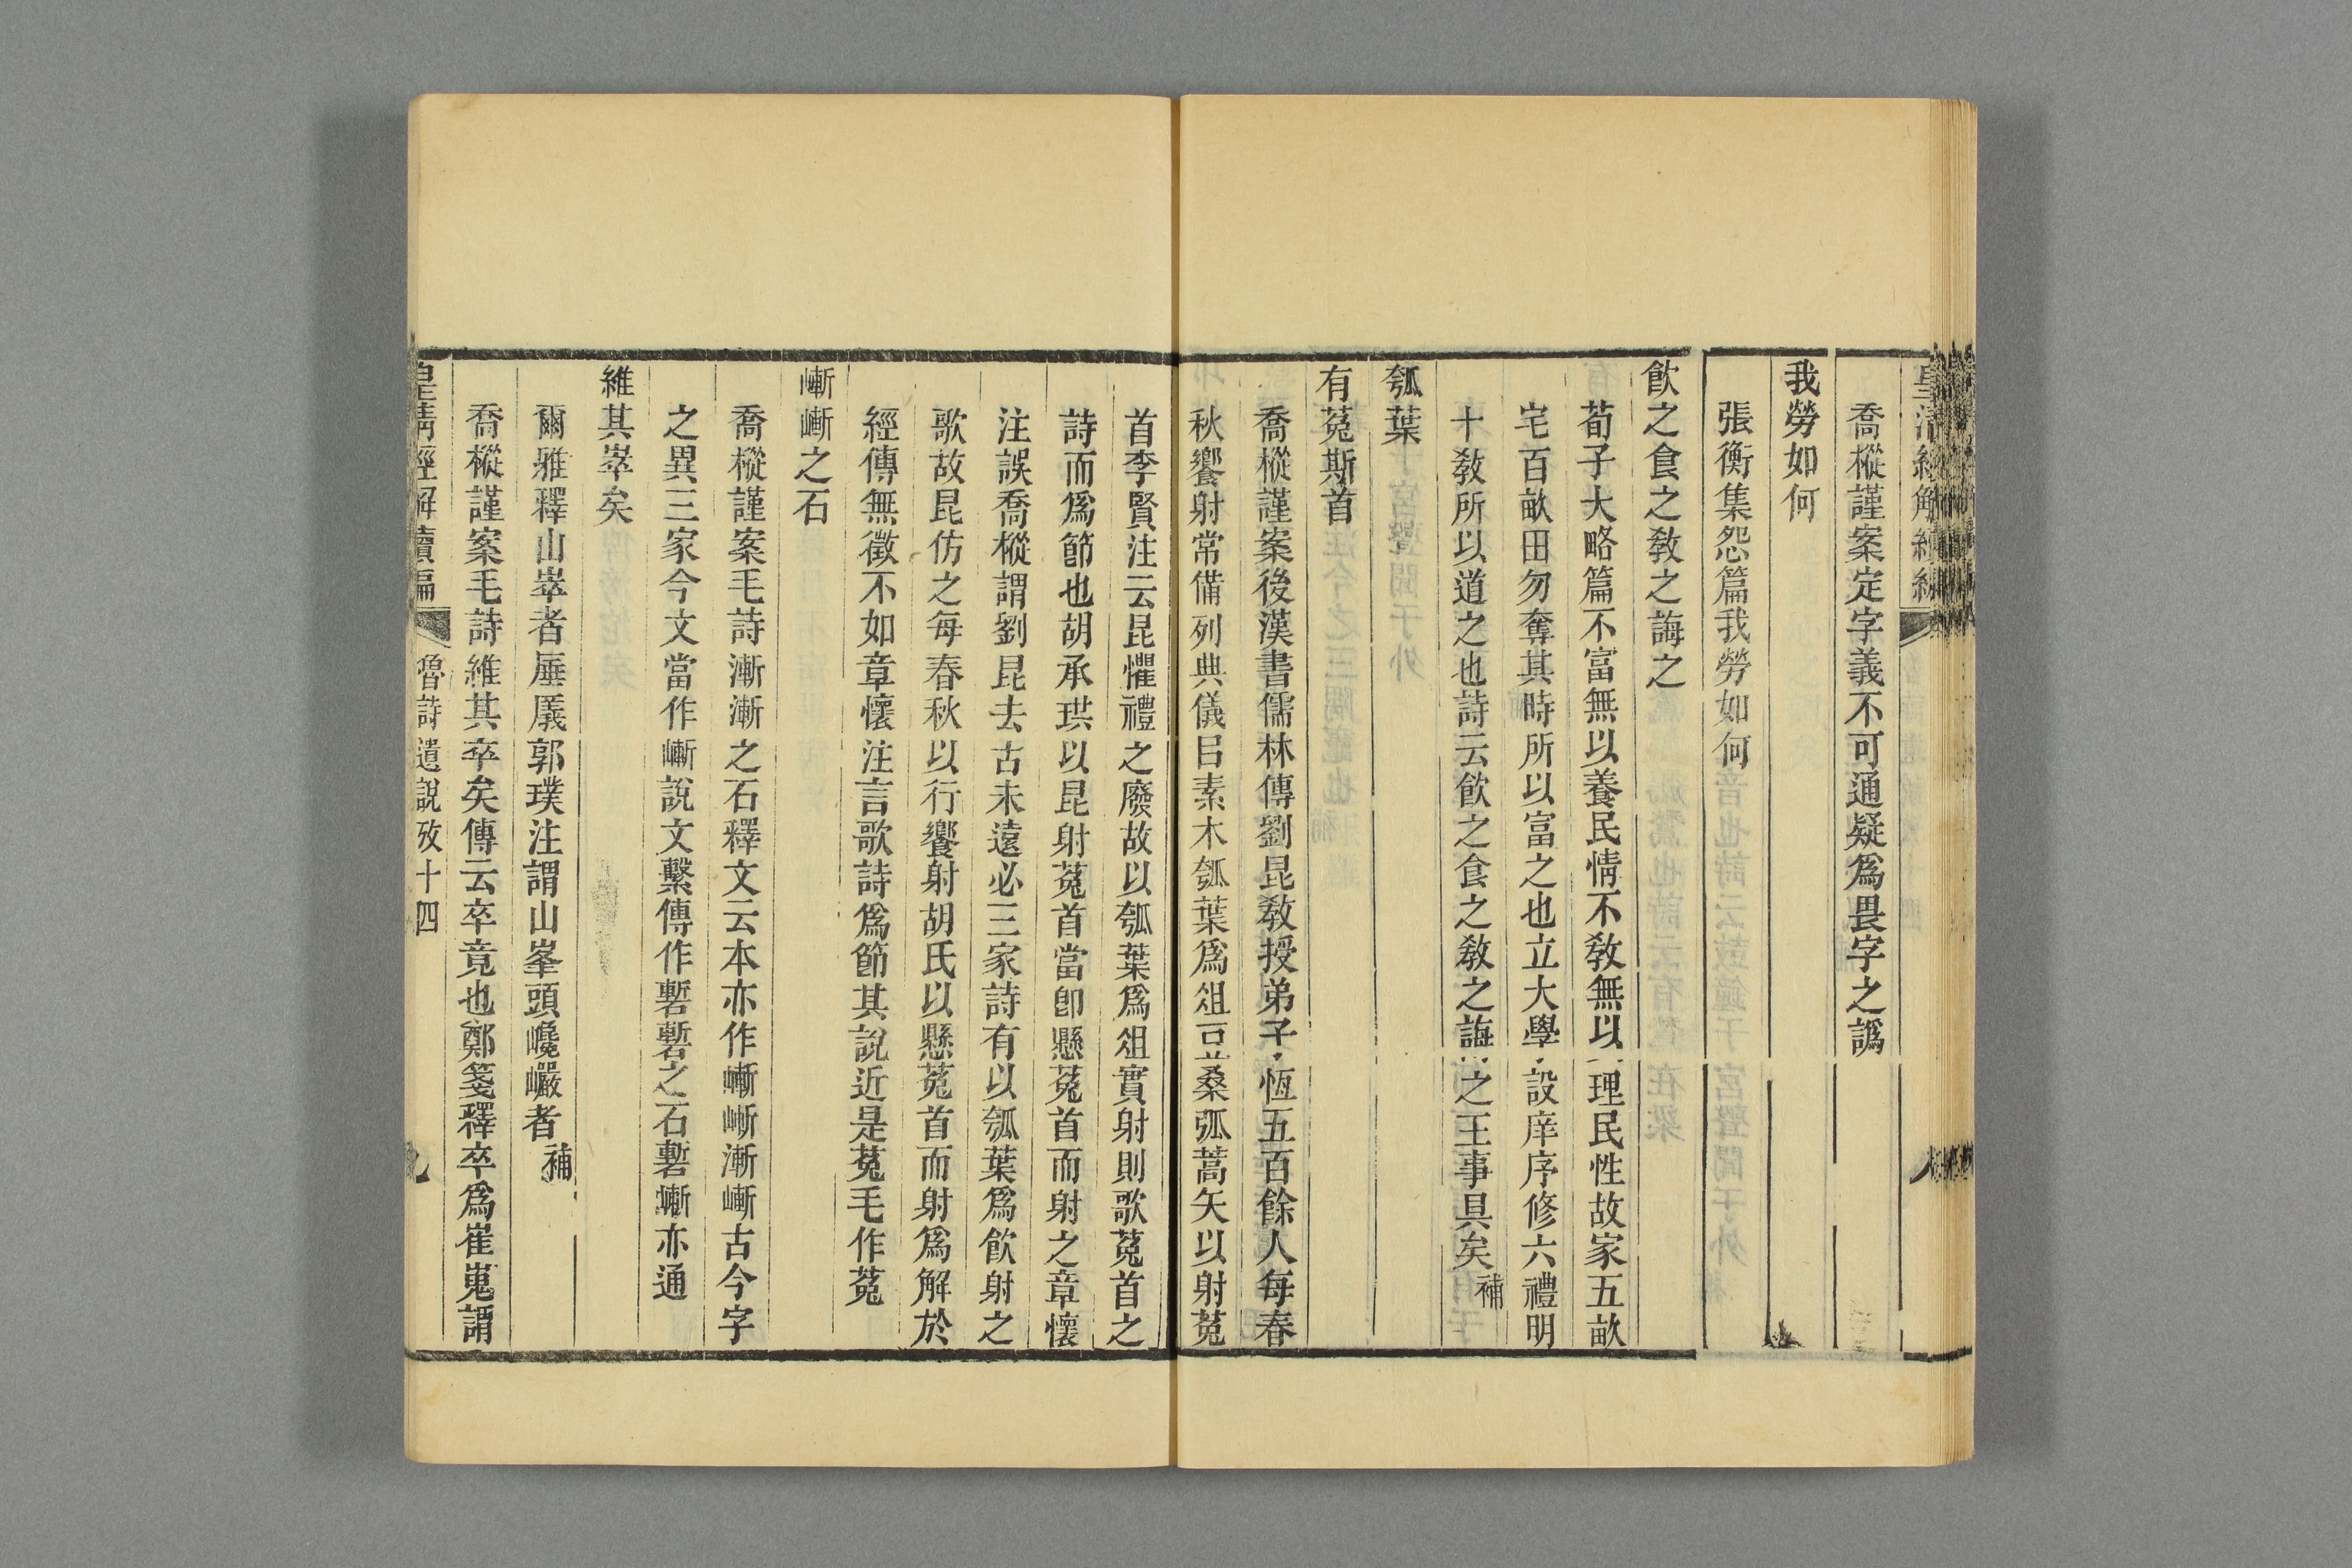 皇清經解續編
喬樅謹案定字義不可通疑爲畏字之譌
我勞如何
張衡集怨篇我勞如何
飲之食之敎之誨之
荀子大略篇不富無以養民情不敎無以理民性故家五畝
宅百畝田勿奪其時所以富之也立大學設庠序修六禮明
十敎所以道之也詩云飲之食之敎之誨之王事具矣補
瓠葉
有菟斯首
喬樅謹案後漢書儒林傳劉昆敎授弟子恆五百餘人每春
秋饗射常備列典儀㠯素木瓠葉爲俎豆桑弧蒿矢以射菟
首李賢注云昆懼禮之廢故以瓠葉爲俎實射則歌菟首之
詩而爲節也胡承珙以昆射菟首當卽懸菟首而射之章懷
注誤喬樅謂劉昆去古未遠必三家詩有以瓠葉爲飲射之
歌故昆仿之每春秋以行饗射胡氏以懸菟首而射爲解於
經傳無徵不如章懷注言歌詩爲節其說近是菟毛作菟
嶃嶃之石
喬樅謹案毛詩漸漸之石釋文云本亦作嶃嶃漸嶃古今字
之異三家今文當作嶃說文繫傳作磛磛之石磛嶃亦通
維其崒矣
爾雅釋山崒者厜㕒郭璞注謂山峯頭巉巖者補
喬樅謹案毛詩維其卒矣傳云卒竟也鄭箋釋卒爲崔嵬謂
皇清經解續編 魯詩遺說攷十四 九